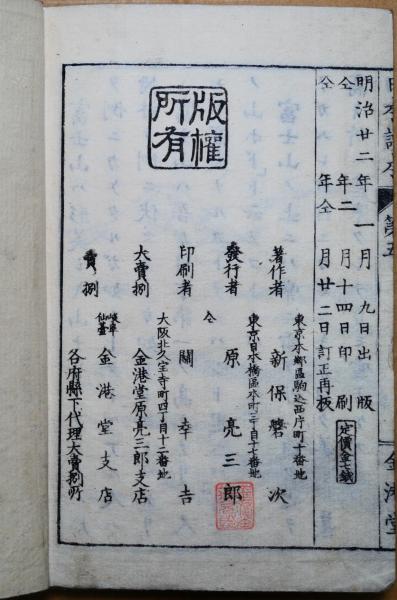 明治廿二年一月九日出版
仝年二月十四日印刷
仝年仝月廿二日訂正再板
定價金七錢
版權所有
東京本鄉區駒込西片町十番地
著作者 新保磐次
東京日本橋區本町三丁目十七番地
發行者 原亮三郎
仝
印刷者 關幸吉
大阪北久宝寺町四丁目十二番地
大賣捌 金港堂原亮三郎支店
賣捌 岐阜 仙臺 金港堂支店
各府縣下代理大賣捌所
第五
金港堂